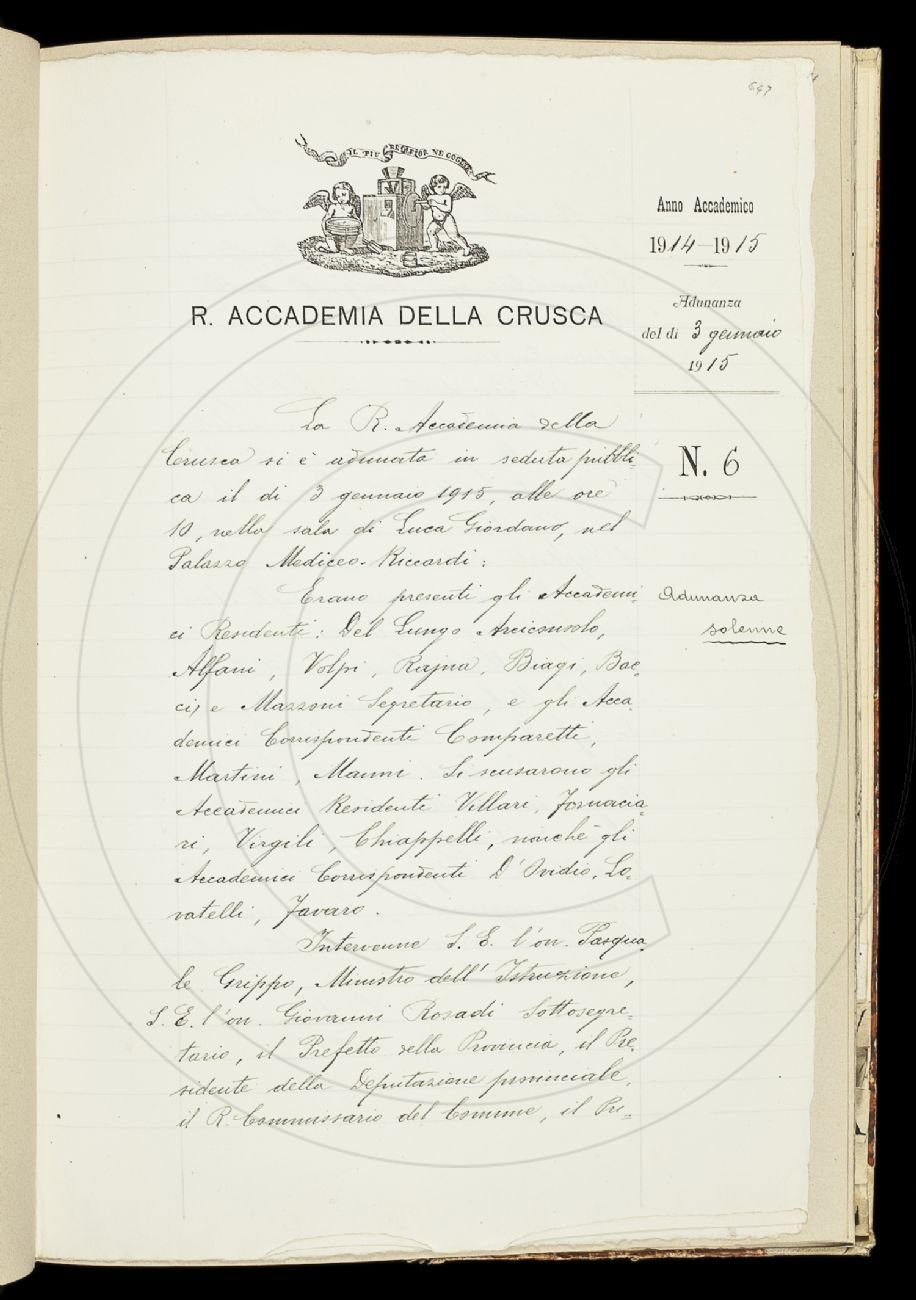 647
IL PIÙ BEL FIOR NE COGLIE
R. ACCADEMIA DELLA CRUSCA
Anno Accademico
1914-1915
Adunanza
del dì 3 gennaio
1915
N. 6
Adunanza
solenne
La R. Accademia della
Crusca si è adunata in seduta pubbli-
ca il dì 3 gennaio 1915, alle ore
10, nella sala di Luca Giordano, nel
Palazzo Mediceo-Riccardi:
Erano presenti gli Accademi-
ci Residenti: Del Lungo Arciconsolo,
Alfani, Volpi, Rajna, Biagi, Bac-
ci, e Mazzoni Segretario, e gli Acca-
demici Corrispondenti Comparetti,
Martini, Manni. Si scusarono gli
Accademici Residenti Villari, Fornacia-
ri, Virgili, Chiappelli, nonchè gli
Accademici Corrispondenti D'Ovidio, Lo-
vatelli, Favaro.
Intervenne S. E. l'on. Pasqua-
le Grippo, Ministro dell'Istruzione,
S. E. l'on. Giovanni Rosadi Sottosegre-
tario, il Prefetto della Provincia, il Pre-
sidente della Deputazione provinciale,
il R. Commissario del Comune, il Pri-